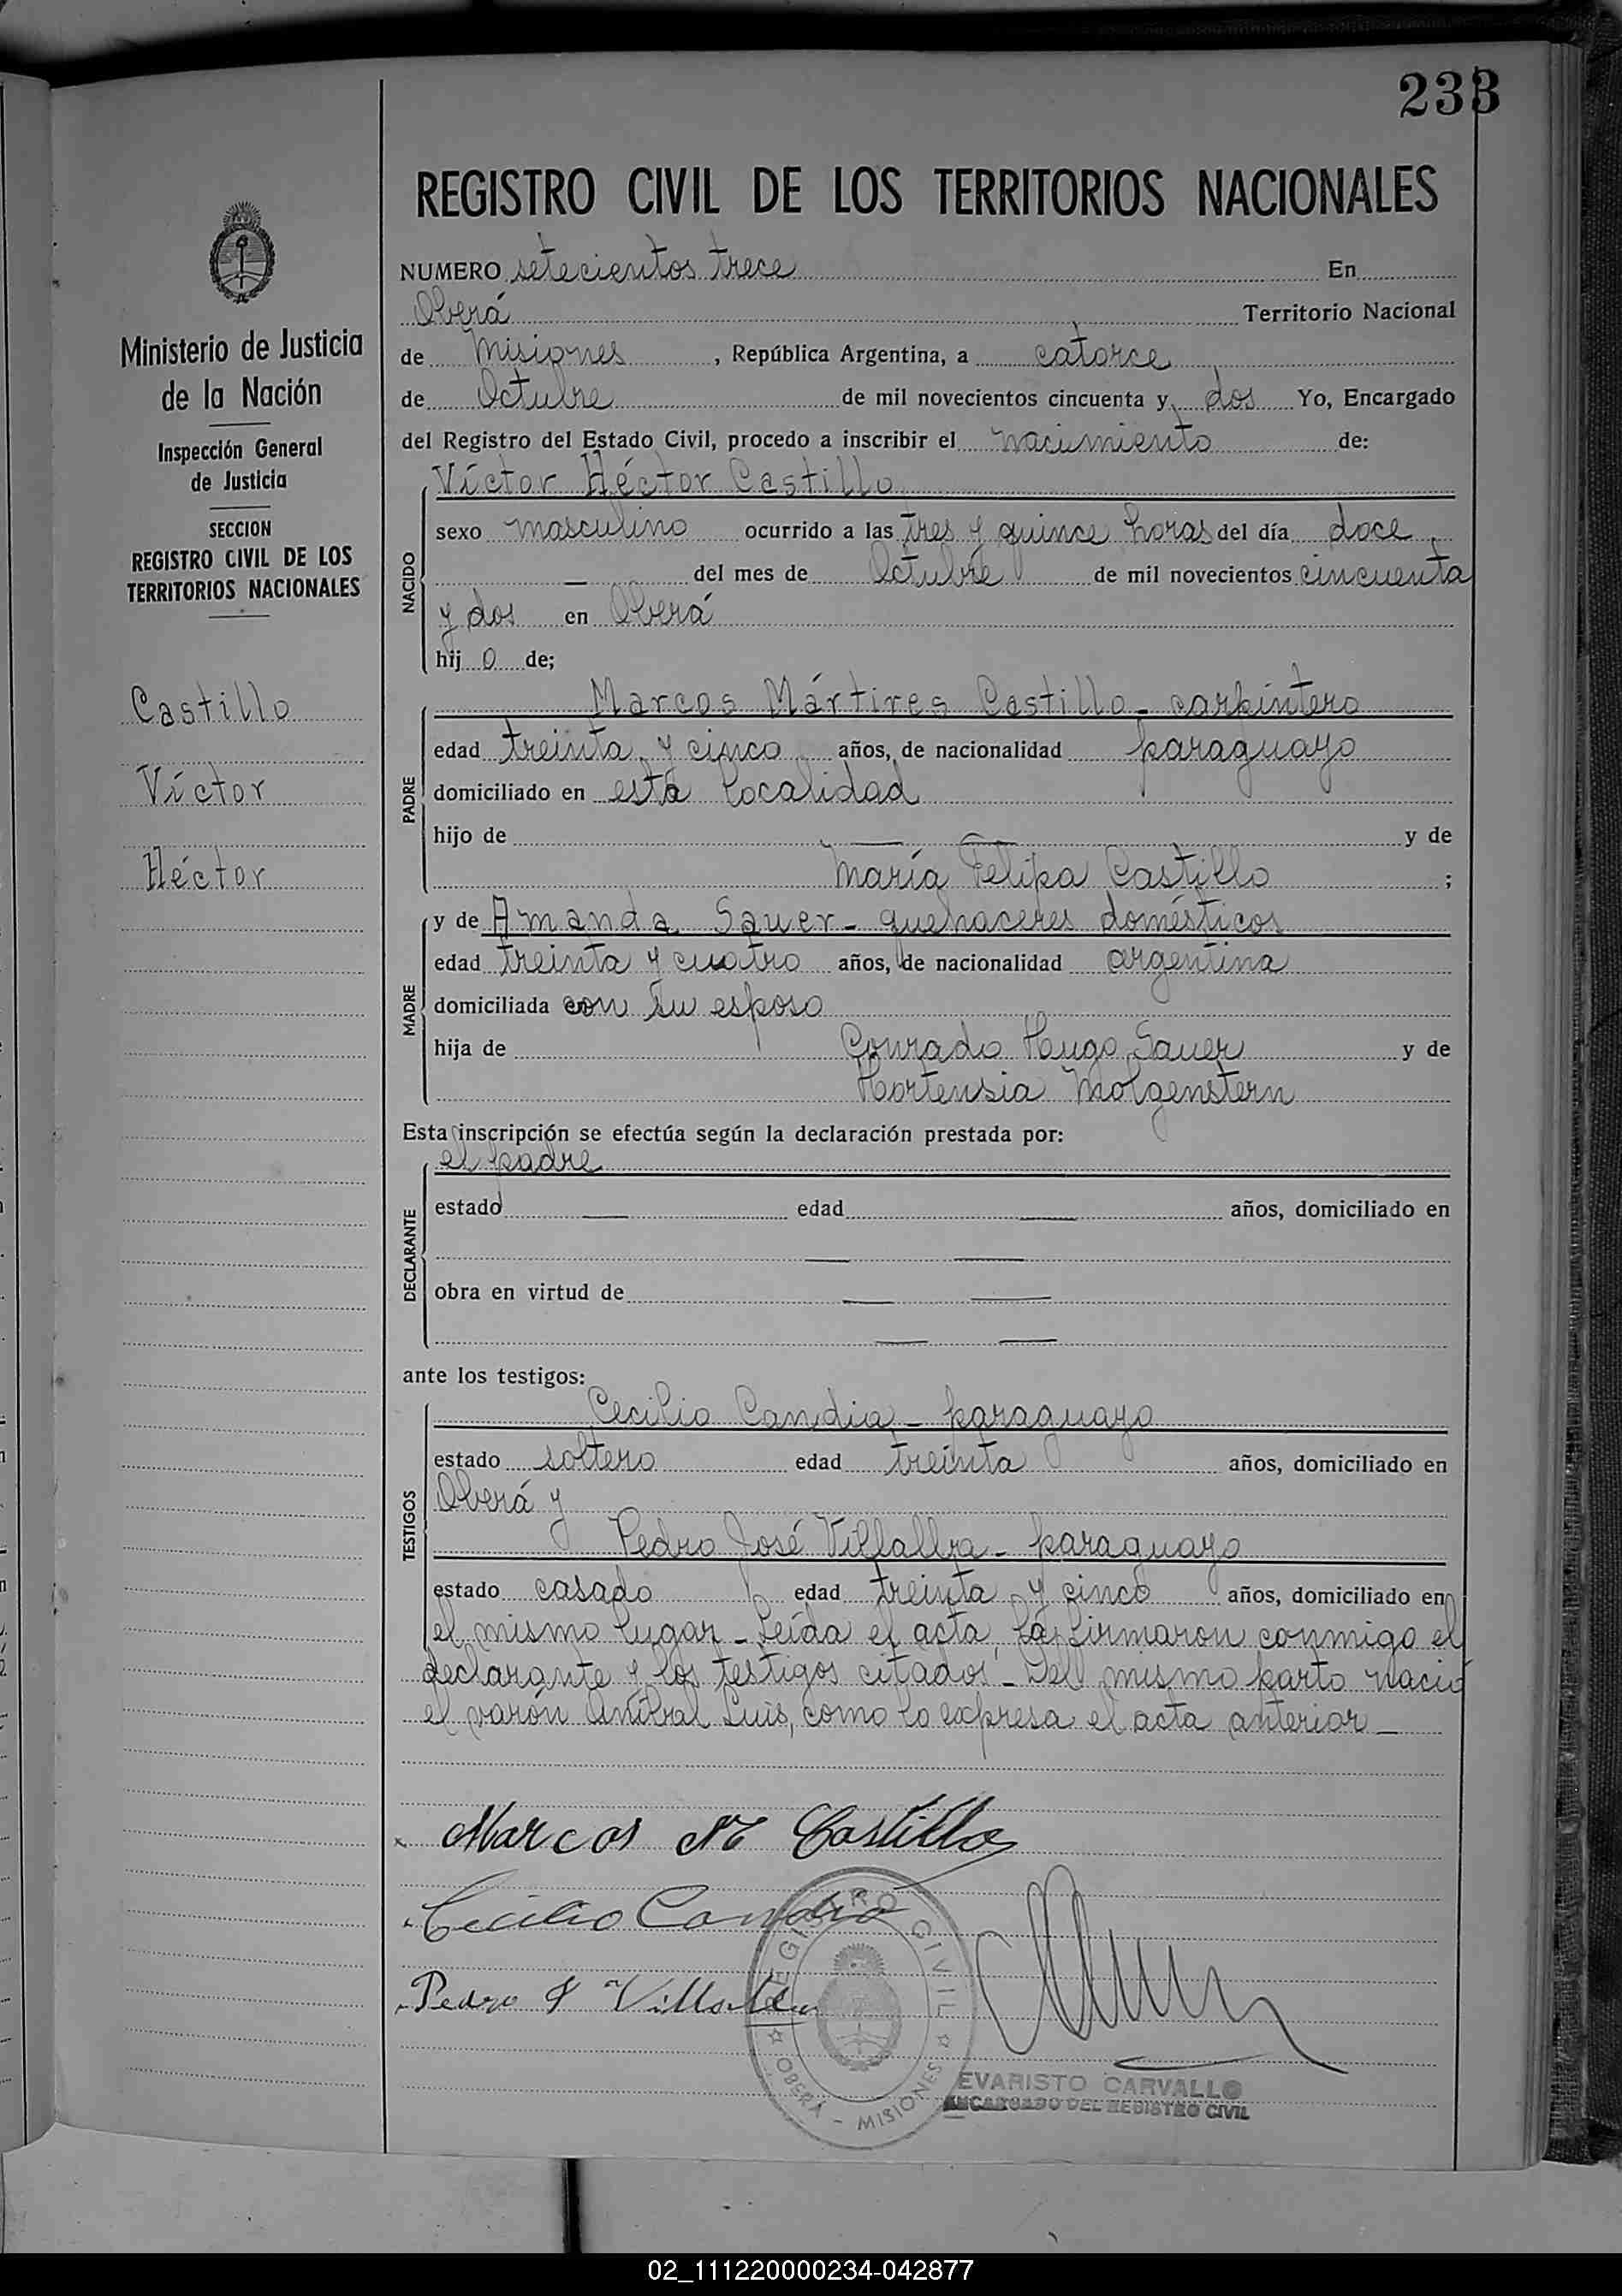 233
REGISTRO CIVIL DE LOS TERRITORIOS NACIONALES
Ministerio de Justicia
de la Nación
Inspección General
de Justicia
SECCION
REGISTRO CIVIL DE LOS
TERRITORIOS NACIONALES
Castillo
Víctor
Héctor
NUMERO setecientos trece En
Oberá Territorio Nacional
de Misiones , República Argentina, a catorce
de Octubre de mil novecientos cincuenta y dos Yo, Encargado
del Registro del Estado Civil, procedo a inscribir el nacimiento de:
NACIDO
Víctor Héctor Castillo
sexo masculino ocurrido a las tres y quince horas del día doce
— del mes de Octubre de mil novecientos cincuenta
y dos en Oberá
hij o de;
PADRE
Marcos Mártires Castillo - carpintero
edad treinta y cinco años, de nacionalidad paraguayo
domiciliado en esta localidad
hijo de — — y de
María Felipa Castillo ;
MADRE
y de Amanda Sauer - quehaceres domésticos
edad treinta y cuatro años, de nacionalidad argentina
domiciliada con su esposo
hija de Conrado Hugo Sauer y de
Hortensia Molgenstern
Esta inscripción se efectúa según la declaración prestada por:
DECLARANTE
el padre
estado — edad — años, domiciliado en
— —
obra en virtud de — —
— —
ante los testigos:
TESTIGOS
Cecilio Candia - paraguayo
estado soltero edad treinta años, domiciliado en
Oberá y
Pedro José Villalba - paraguayo
estado casado edad treinta y cinco años, domiciliado en
el mismo lugar - Leída el acta, la firmaron conmigo el
declarante y los testigos citados - Del mismo parto nació
el varón Aníbal Luis, como lo expresa el acta anterior —
Marcos M Castillo
Cecilio Candia
Pedro J Villalba
REGISTRO CIVIL
OBERÁ - MISIONES
EVARISTO CARVALLO
ENCARGADO DEL REGISTRO CIVIL
02_111220000234-042877